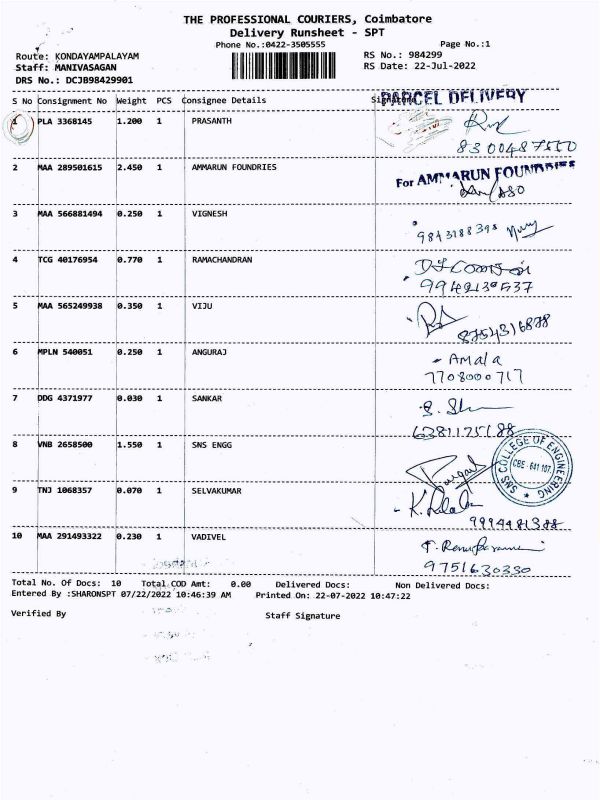 THE PROFESSIONAL COURIERS, Coimbatore
Delivery Runsheet - SPT
Phone No.:0422-3505555 Page No.:1
Route: KONDAYAMPALAYAM RS No.: 984299
Staff: MANIVASAGAN RS Date: 22-Jul-2022
DRS No.: DCJB98429901
S No Consignment No Weight PCS Consignee Details Signature PARCEL DELIVERY
1 PLA 3368145 1.200 1 PRASANTH
8300487550
2 MAA 289501615 2.450 1 AMMARUN FOUNDRIES For AMMARUN FOUNDRIES
3 MAA 566881494 0.250 1 VIGNESH
9843188398
4 TCG 40176954 0.770 1 RAMACHANDRAN
9942130537
5 MAA 565249938 0.350 1 VIJU
8754316878
6 MPLN 540051 0.250 1 ANGURAJ Amala
7708000717
7 DDG 4371977 0.030 1 SANKAR
6381175188
8 VNB 2658500 1.550 1 SNS ENGG
SNS COLLEGE OF ENGINEERING
CBE - 641 107.
9 TNJ 1068357 0.070 1 SELVAKUMAR
9994481388
10 MAA 291493322 0.230 1 VADIVEL
9751630330
Total No. Of Docs: 10 Total COD Amt: 0.00 Delivered Docs: Non Delivered Docs:
Entered By :SHARONSPT 07/22/2022 10:46:39 AM Printed On: 22-07-2022 10:47:22
Verified By Staff Signature